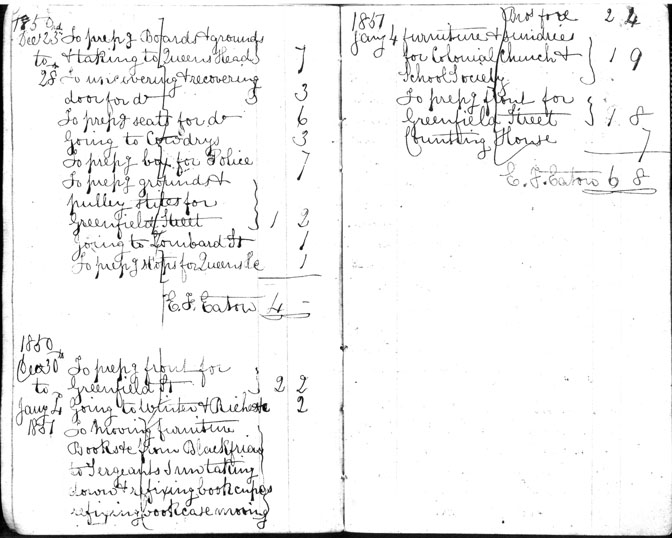 1850
Decr 23rd To prepg Boards & grounds
to & taking to Queens Head 7
28 To uncovering & recovering
door for do 3
To prepg seats for do 6
Going to Cowdrys 3
To prepg box for Police 7
To prepg grounds &
pulley stiles for
Greenfield Street 1 2
going to Lombard St 1
To prepg stops for Queens 1
E. F. Eatow 4 -
1850
Dec 30th To prepg front for
to Greenfield St 2 2
Jany 4 Going to Winter & 2
1851 To Moving furniture
Books &c from Blackfriars
to Sergeants Inn taking
down & refixing book cup
refixing bookcase moving
1851 Bro fore 2 4
Jany 4 furniture & sundries
for Colonial Church & 1 9
School Society
To prepg front for
Greenfield Street 1 8
Counting House 7
E. F. Eatow 6 8